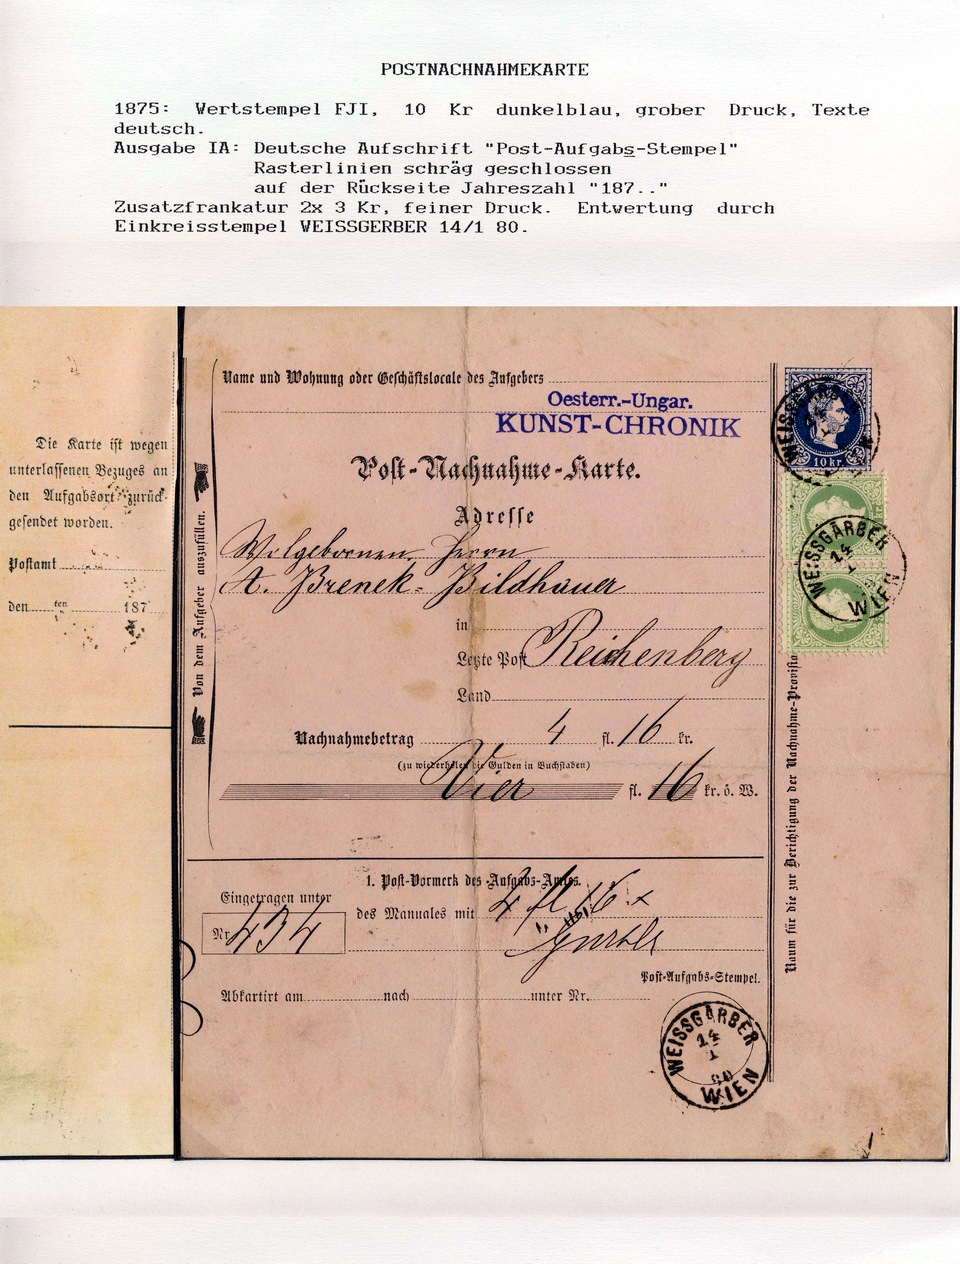 POSTNACHNAHMEKARTE
1875: Wertstempel FJI, 10 Kr dunkelblau, grober Druck, Texte
deutsch.
Ausgabe IA: Deutsche Aufschrift "Post-Aufgabs-Stempel"
Rasterlinien schräg geschlossen
auf der Rückseite Jahreszahl "187.."
Zusatzfrankatur 2x 3 Kr, feiner Druck. Entwertung durch
Einkreisstempel WEISSGERBER 14/1 80.
Die Karte ist wegen
unterlassenen Bezuges an
den Aufgabsort zurück-
gesendet worden.
Postamt
den ten 187
Von dem Aufgeber auszufüllen.
Name und Wohnung oder Geschäftslocale des Aufgebers
Oesterr.-Ungar.
KUNST-CHRONIK
Post-Nachnahme-Karte.
Adresse
Wolgebornen Herrn
A. Brenek - Bildhauer
in
Letzte Post Reichenberg
Land
Nachnahmebetrag 4 fl. 16 kr.
(zu wiederholen die Gulden in Buchstaben)
Vier fl. 16 kr. ö. W.
1. Post-Vormerk des Aufgabs-Amtes.
Eingetragen unter
Nr. 434
des Manuales mit 4 fl 16 x
Post-Aufgabs-Stempel.
Abkartirt am nach unter Nr.
WEISSGÄRBER
14
1
80
WIEN
10 kr.
WEISSGÄRBER
14
1
WIEN
Raum für die zur Berichtigung der Nachnahme-Provisio